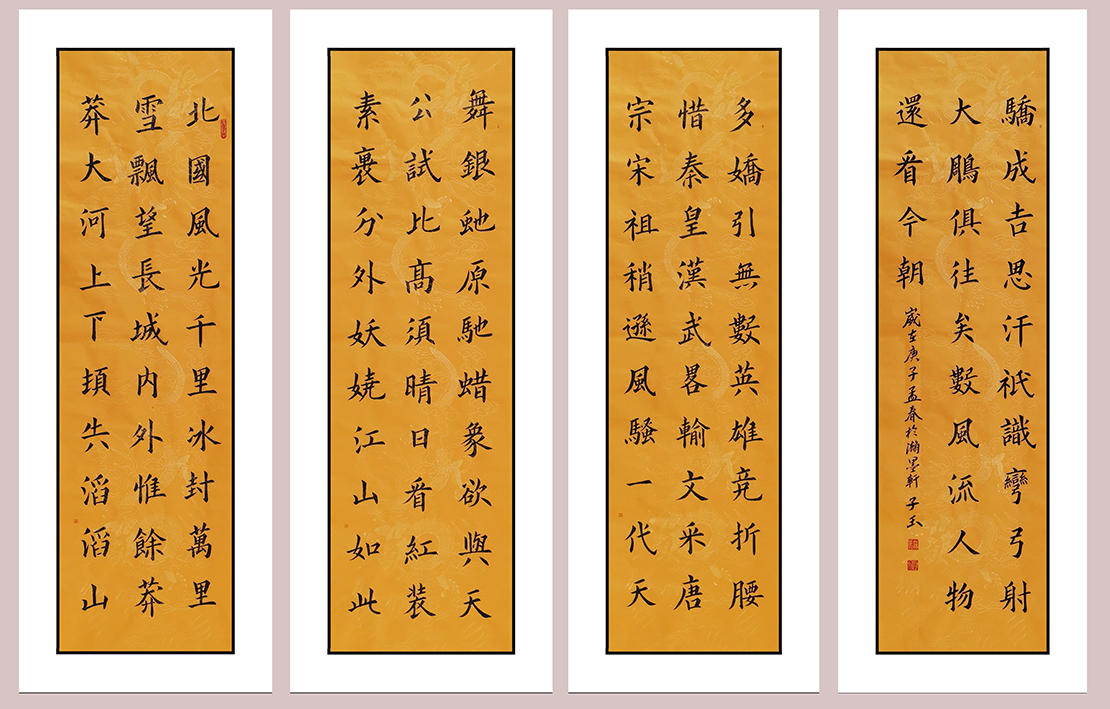 北國風光千里冰封萬里
雪飄望長城内外惟餘莽
莽大河上下頓失滔滔山
舞銀虵原馳蜡象欲與天
公試比髙須晴日看紅装
素裹分外妖嬈江山如此
多嬌引無數英雄竞折腰
惜秦皇漢武畧輸文采唐
宗宋祖稍遜風騷一代天
驕成吉思汗祇識彎弓射
大鵰俱徃矣數風流人物
還看今朝
歲在庚子孟春於瀚墨軒子玉